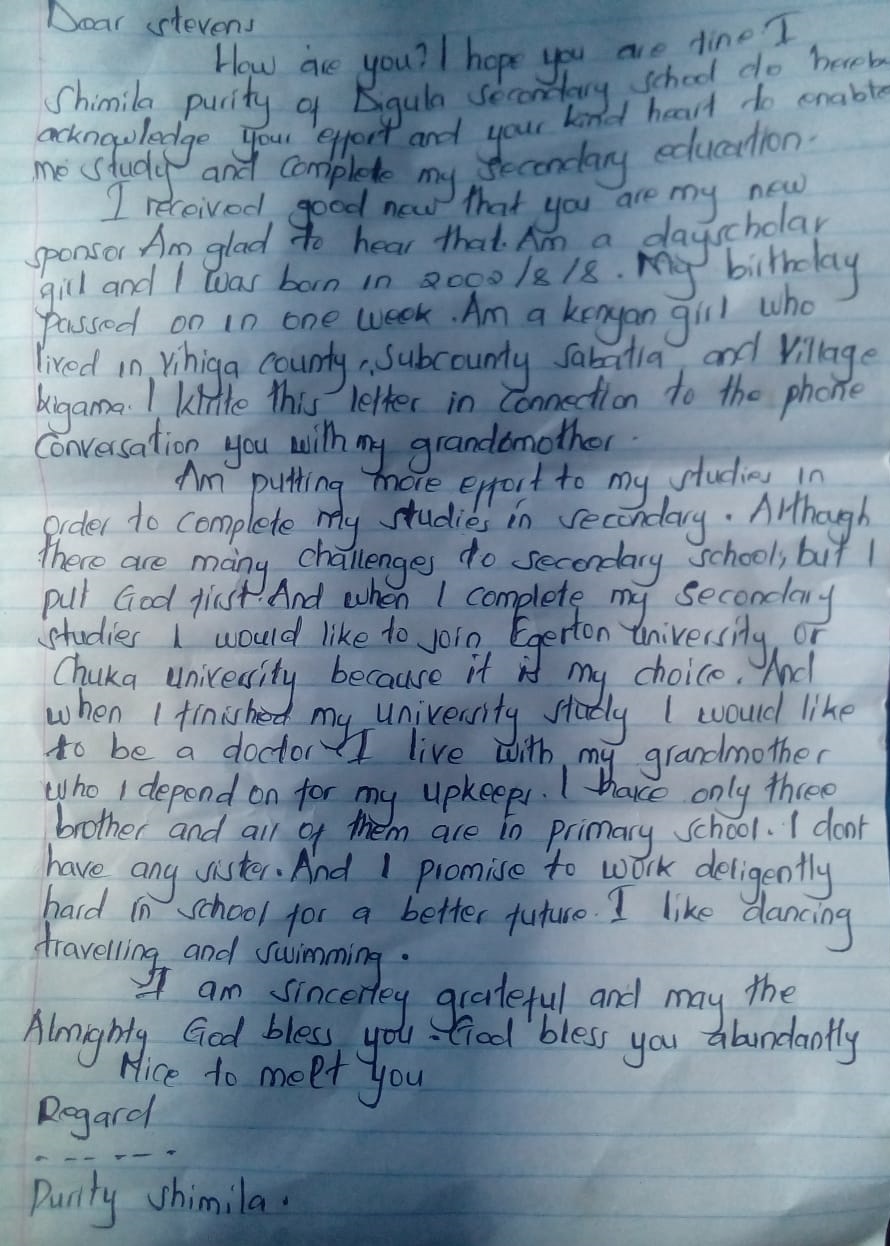 Dear Stevens
How are you? I hope you are fine I
Shimila purity of Bigula Secondary school do hereb
acknowledge your effort and your kind heart to enable
me study and complete my secondary education.
I received good new that you are my new
sponsor Am glad to hear that. Am a dayscholar
girl and I was born in 2002/8/8. My birthday
passed on in one week. Am a kenyan girl who
lived in Vihiga county, Subcounty Sabatia and Village
kigama. I write this letter in connection to the phone
Conversation you with my grandomother.
Am putting more effort to my studies in
order to complete my studies in secondary. Although
there are many challenges to secondary school, but I
put God first. And when I complete my Secondary
studies I would like to join Egerton University or
Chuka university because it is my choice. And
when I finished my university study I would like
to be a doctor I live with my grandmother
who I depend on for my upkeeps. I have only three
brother and all of them are in primary school. I dont
have any sister. And I promise to work deligently
hard in school for a better future. I like dancing
travelling and swimming.
I am sincerley grateful and may the
Almighty God bless you. God bless you abundantly
Nice to meet you
Regard
------
Purity Shimila.